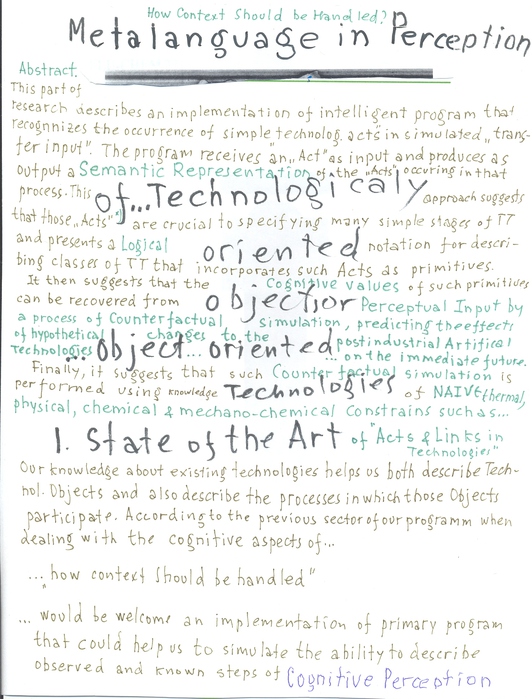 How Context Should be Handled?
Metalanguage in Perception
Abstract.
This part of
research describes an implementation of intelligent program that
recognnizes the occurrence of simple technolog. acts in simulated „trans-
fer input". The program receives an „Act" as input and produces as
output a Semantic Representation of the „Acts" occuring in that
process. This of...Technologicaly approach suggests
that those „Acts" are crucial to specifying many simple stages of TT
and presents a Logical oriented notation for descri-
bing classes of TT that incorporates such Acts as primitives.
It then suggests that the Cognitive values of such primitives
can be recovered from object/or Perceptual Input by
a process of Counterfactual simulation, predicting the effects
of hypothetical changes to the postindustrial Artifical
Technologies ... object... oriented ... on the immediate future.
Finally, it suggests that such Counter factual simulation is
performed using knowledge Technologies of NAIVE thermal,
physical, chemical & mechano-chemical Constrains such as...
1. State of the Art of "Acts & Links in
Technologies"
Our knowledge about existing technologies helps us both describe Tech-
nol. Objects and also describe the processes in which those Objects
participate. According to the previous sector of our programm when
dealing with the cognitive aspects of...
... „how context should be handled"
... would be welcome an implementation of primary program
that could help us to simulate the ability to describe
observed and known steps of Cognitive Perception